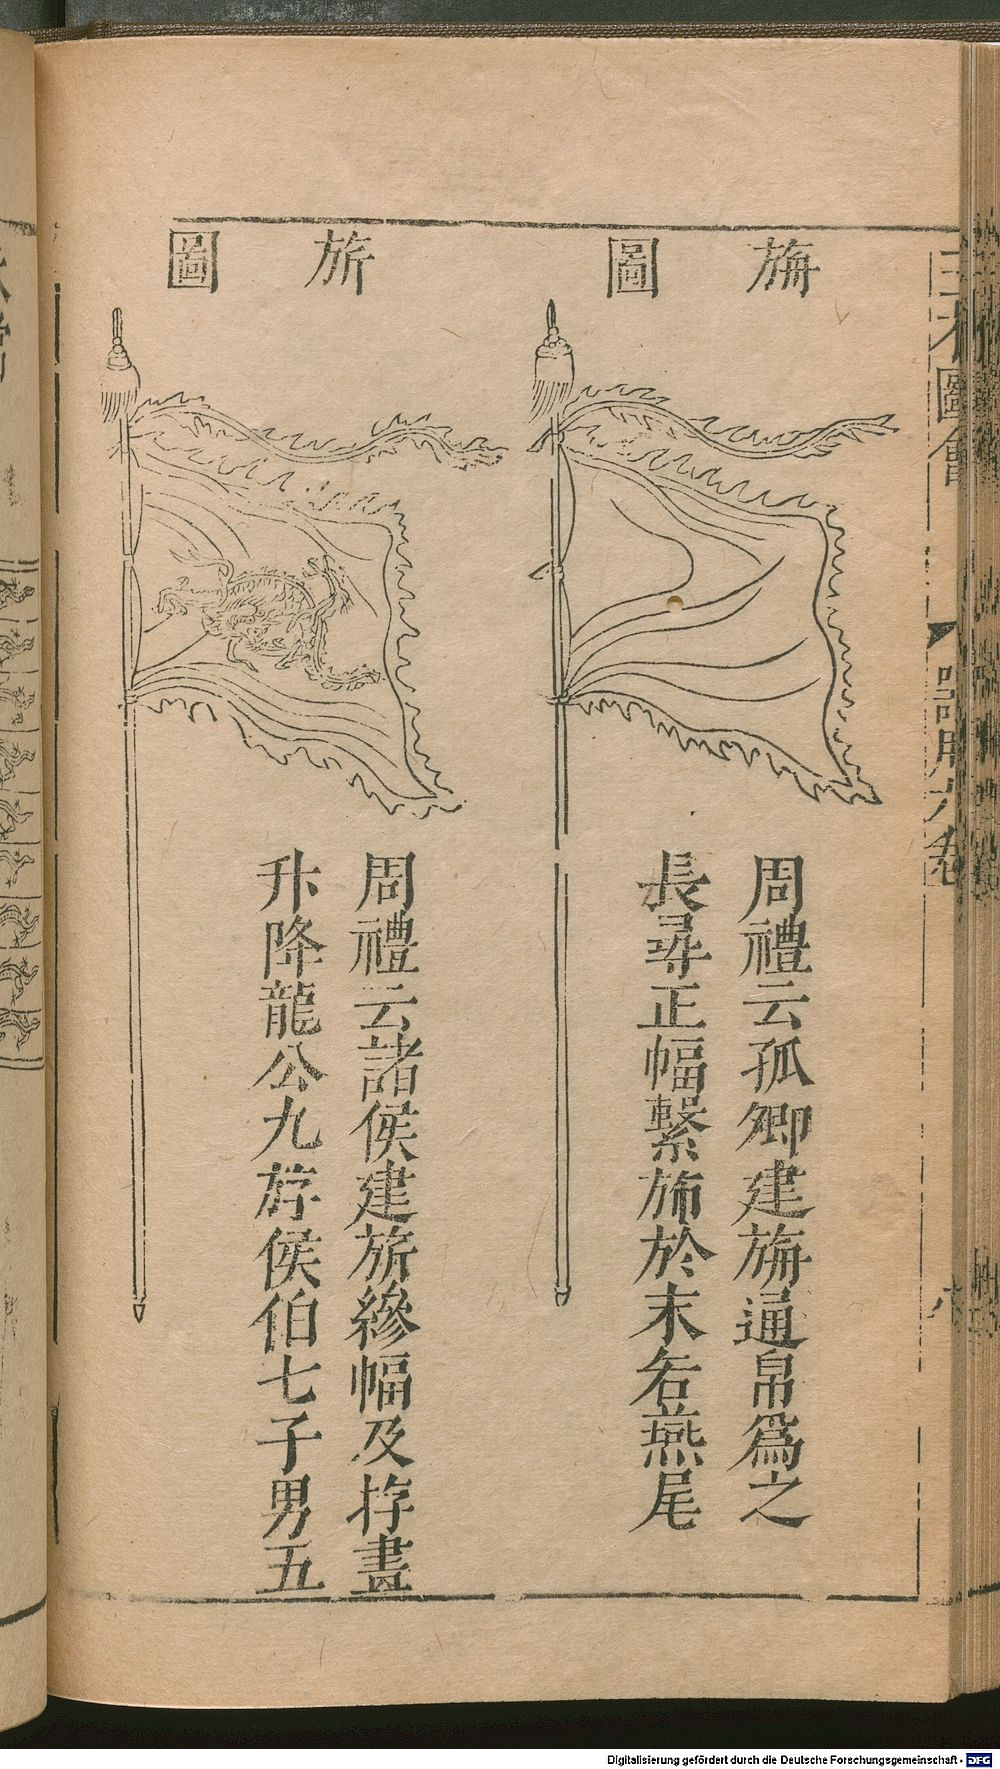 旃圖
周禮云孤卿建旃通帛爲之
長尋正幅繫斾於末若燕尾
旂圖
周禮云諸侯建旂縿幅及斿畫
升降龍公九斿侯伯七子男五
三才圖會
器用六卷
Digitalisierung gefördert durch die Deutsche Forschungsgemeinschaft - DFG